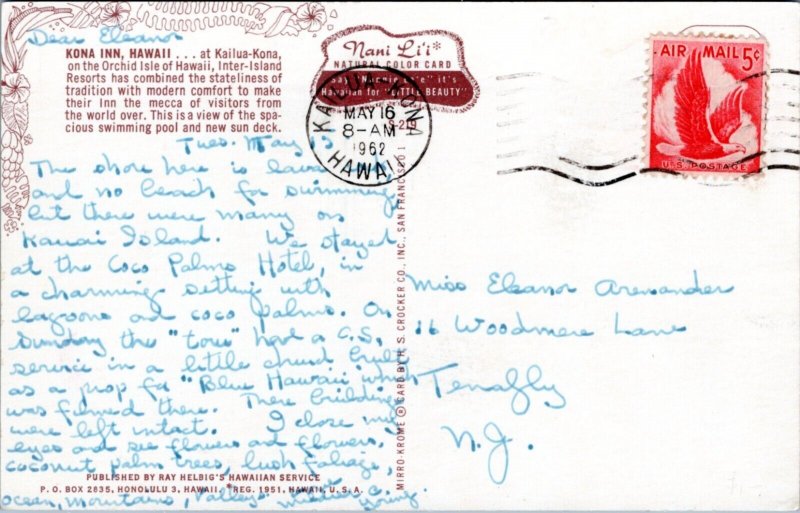 Dear Eleanor
KONA INN, HAWAII . . . at Kailua-Kona,
on the Orchid Isle of Hawaii, Inter-Island
Resorts has combined the stateliness of
tradition with modern comfort to make
their Inn the mecca of visitors from
the world over. This is a view of the spa-
cious swimming pool and new sun deck.
Nani Li'i*
NATURAL COLOR CARD
it's
Hawaiian for "LITTLE BEAUTY"
S-219
KAILUA KONA
MAY 16
8-AM
1962
HAWAII
AIR MAIL 5¢
U.S. POSTAGE
Tues. May 15
The shore here is lava
and no beach for swimming,
but there were many on
Kauai Island. We stayed
at the Coco Palms Hotel, in
a charming setting with
lagoons and coco palms. On
Sunday the "tour" had a C.S.
service in a little church built
as a prop for "Blue Hawaii" which
was filmed there. These buildings
were left intact. I close my
eyes and see flowers and flowers,
coconut palm trees, lush foliage,
ocean, mountains, valleys
PUBLISHED BY RAY HELBIG'S HAWAIIAN SERVICE
P. O. BOX 2835, HONOLULU 3, HAWAII. *REG. 1951, HAWAII, U. S. A.
MIRRO-KROME ® CARD BY H. S. CROCKER CO., INC., SAN FRANCISCO 1
Miss Eleanor Arenander
16 Woodmere Lane
Tenafly
N.J.